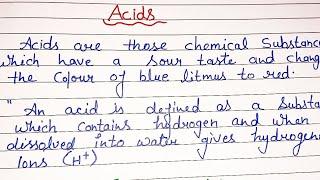 Acids
Acids are those chemical Substance
which have a sour taste and chang
the Colour of blue litmus to red:
" An acid is defined as a Substa
which contains hydrogen and when
dissolved into water gives hydrogen
Ions (H+)